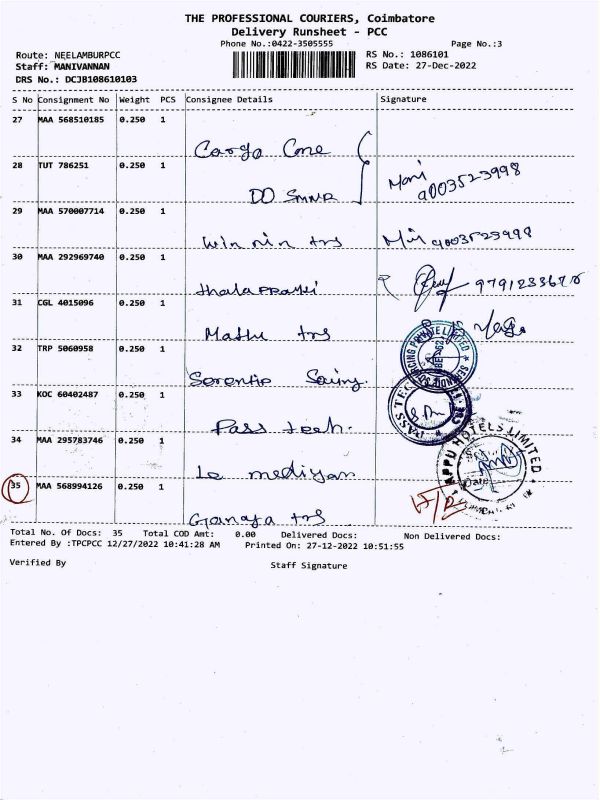 THE PROFESSIONAL COURIERS, Coimbatore
Delivery Runsheet - PCC
Phone No.:0422-3505555 Page No.:3
Route: NEELAMBURPCC RS No.: 1086101
Staff: MANIVANNAN RS Date: 27-Dec-2022
DRS No.: DCJB108610103
S No Consignment No Weight PCS Consignee Details Signature
27 MAA 568510185 0.250 1
Cargo Care
28 TUT 786251 0.250 1
DD SMNR Mani
9003523998
29 MAA 570007714 0.250 1
Win win trs 9003523998
30 MAA 292969740 0.250 1
31 CGL 4015096 0.250 1
Mathu trs
32 TRP 5060958 0.250 1
33 KOC 60402487 0.250 1
Pass tech.
34 MAA 295783746 0.250 1
Le mediyan
APPU HOTELS LIMITED
35 MAA 568994126 0.250 1
trs
Total No. Of Docs: 35 Total COD Amt: 0.00 Delivered Docs: Non Delivered Docs:
Entered By :TPCPCC 12/27/2022 10:41:28 AM Printed On: 27-12-2022 10:51:55
Verified By Staff Signature